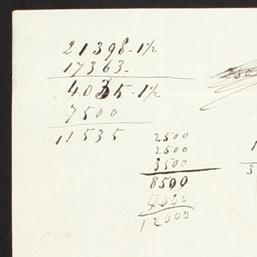 21398-1/2
17363-
4035-1/2
7500
11535
2500
2500
3500
8500
4000
12.000